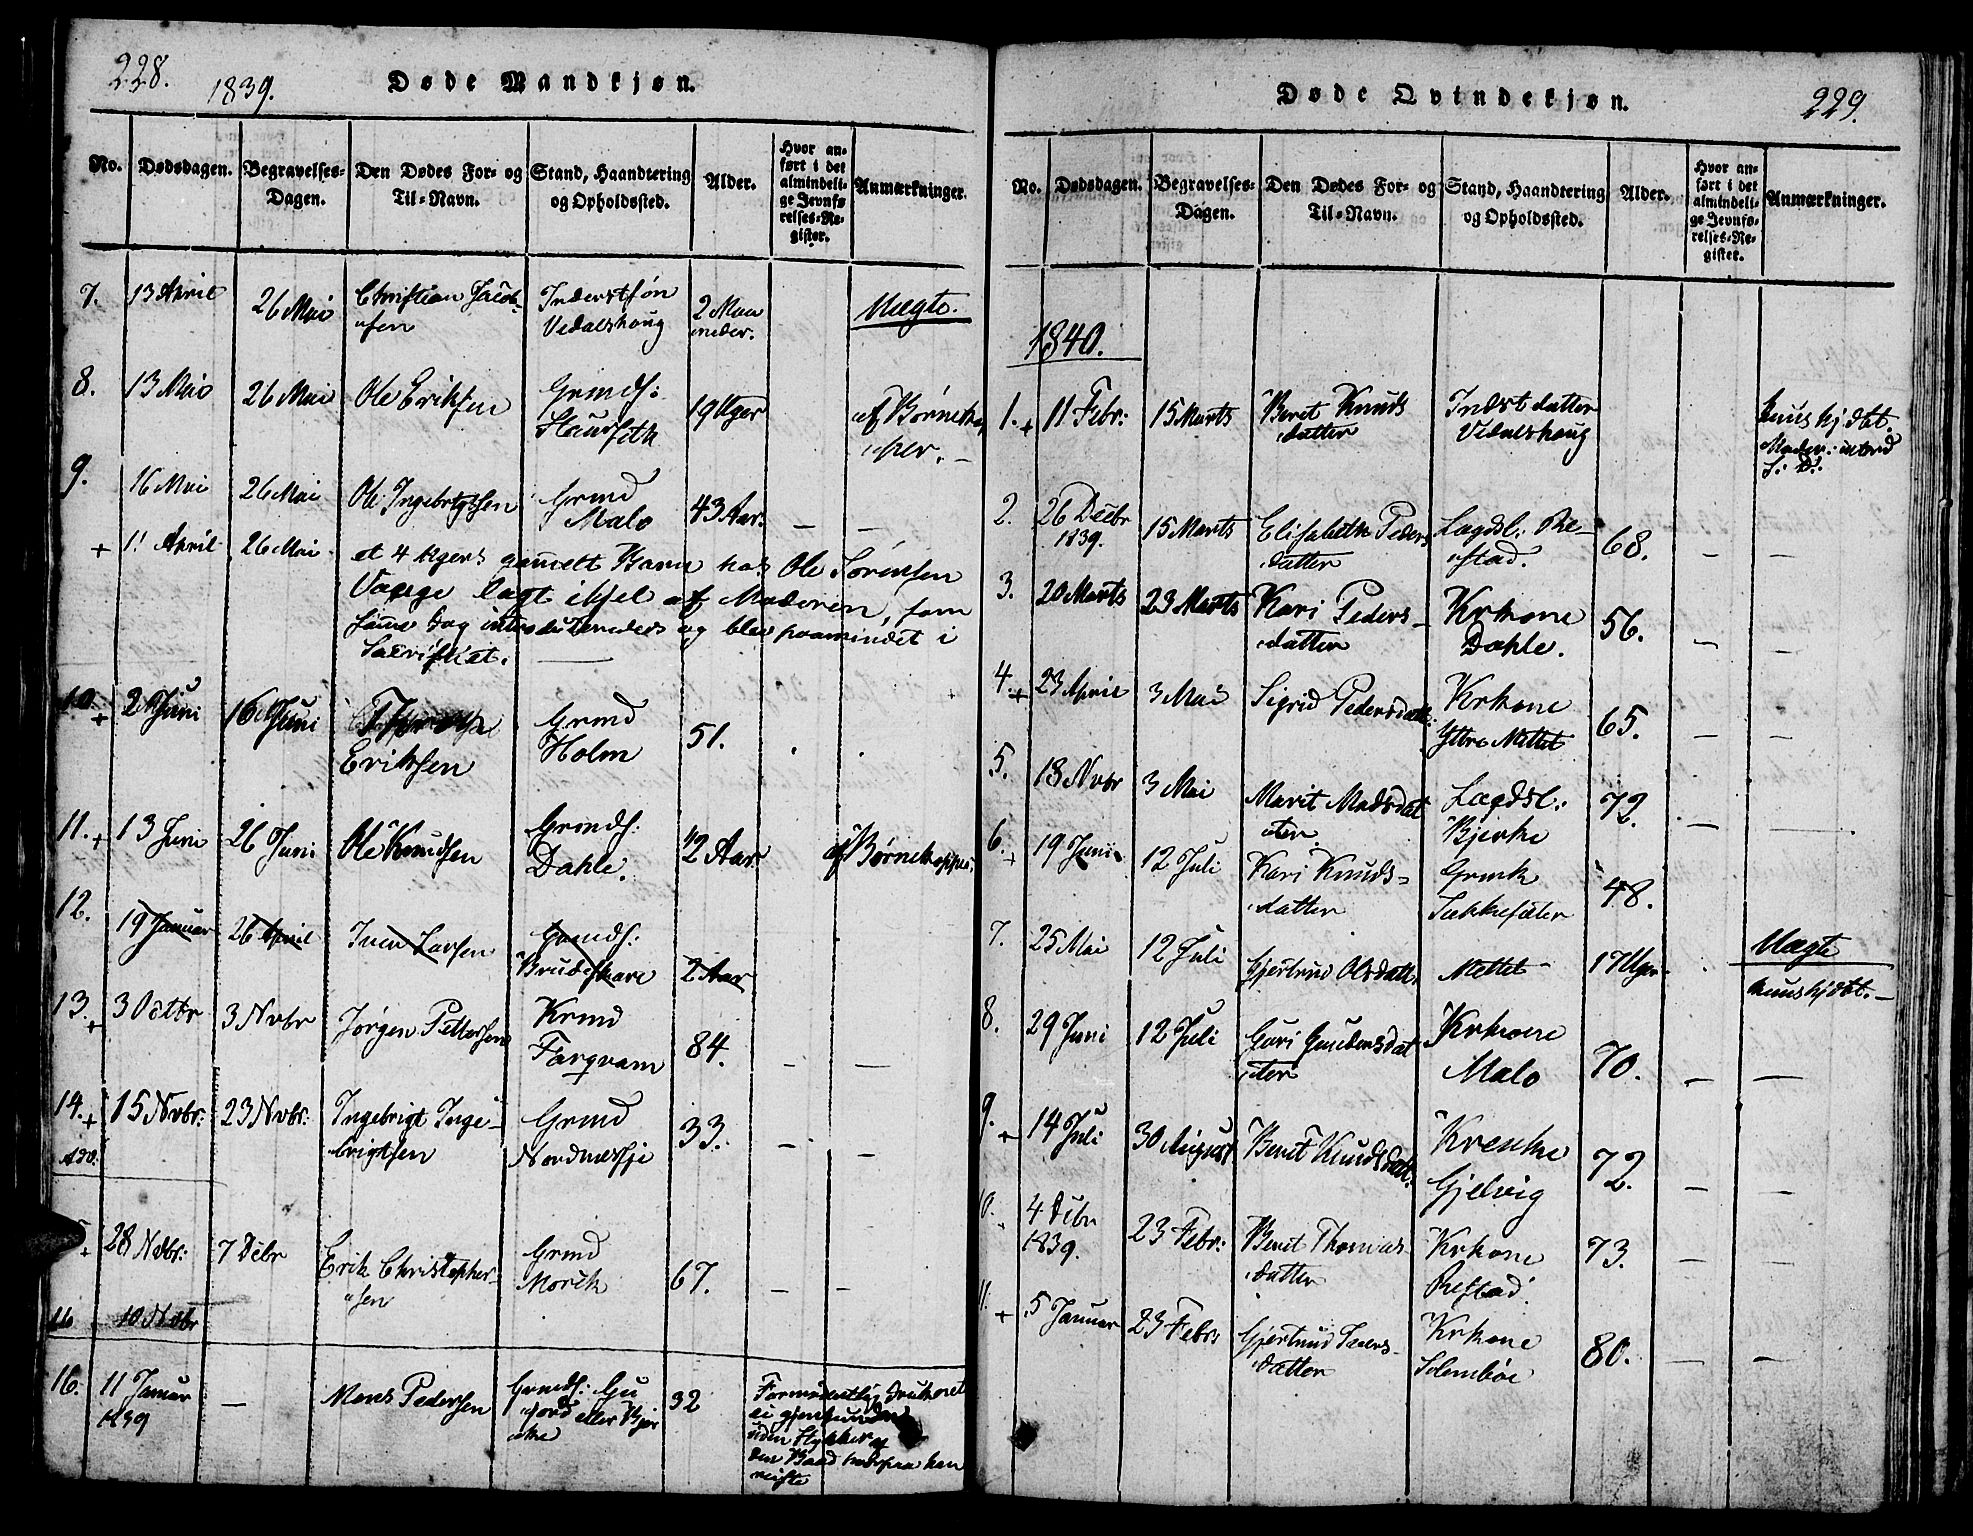 228.
1839.
Døde Mandkjøn.
No.
Dødsdagen.
Begravelses-
Dagen.
Den Dødes For- og
Til-Navn.
Stand, Haandtering
og Opholdssted.
Alder.
Hvor an-
ført i det
almindeli-
ge Jevnfø
relses-Re-
gister.
Anmærkninger.
7. 13 April 26 Mai Christian Jacob-
sen
Inderstsøn
Vedalshoug
2 Maa
neder.
Uægte.
8. 13 Mai 26 Mai Ole Eriksen
Grmds:
19 Uger
af Børnekop
per. -
9. 16 Mai 26 Mai Ole Ingebrigtsen
Grmd
Malo
43 Aar. - -
+ 11 April 26 Mai et 4 Ugers gammelt Barn hos Ole Sørensen
Vaage lagt ihjel af Moderen, som
samme Dag introduceredes og blev paamindet i
Sacristiet.
10. + 2 Juni 16 Juni
Eriksen
Grmd
Holm
51.
11. + 13 Juni 26 Juni Ole Knudsen
Grmds:
Dahle.
2 Aar
af Børnekopper.
12. 19 Januar 26 April Iver Larsen
Grmds:
Brudeskare
2 Aar
13. + 3 Octbr 3 Novbr Jørgen Pettersen
Krmd
Farqvam
84. - -
14. + 15 Nvbr: 23 Nvbr: Ingebrigt Inge-
brigtsen
Grmd
Nordnessje
33. - -
+ 28 Nvbr: 7 Debr Erik Christopher-
sen
Grmd
Morik
67. - -
16 10 Nvbr
16. 11 Januar
1839
- Mons Pedersen
Grmds: Gu
jord eller Bjer
ke
32
Formodentlig druknet
ei gjenfunden
uden Stykker af
den Baad hvorpaa han
reiste
Døde Qvindekjøn.
229.
No.
Dødsdagen.
Begravelses-
Dagen.
Den Dødes For- og
Til-Navn.
Stand, Haandtering
og Opholdssted.
Alder.
Hvor an-
ført i det
almindeli-
ge Jevnfø-
relses-Re-
gister.
Anmærkninger.
1840.
1. + 11 Febr: 15 Marts Beret Knuds
datter
Indst datter
Vedalshoug
huushjdbt.
2. 26 Decbr
1839.
15 Marts Elisabeth Peders
datter
Lægdsl: Re-
stad.
68. - -
3. 20 Marts 23 Marts Kari Peders-
datter
Krkone
Dahle.
56. - -
4. + 23 April 3 Mai Sigrid Pedersdatt.
Krkone
Yttre Mettet
65. - -
5. 18 Nvbr 3 Mai Marit Madsdat
ter
Lægdsl:
Bjerke
72. - -
6. + 19 Juni 12 Juli Kari Knuds-
datter
Grmk
Sekkesæter
48.
7. 25 Mai 12 Juli Gjertrud Olsdatt.
Mettet
17 Uger
Uægte
huushjdbt. -
8. 29 Juni 12 Juli Guri Gundersdat
ter
Krkone
Malo
70. - -
9. + 14 Juli 30 August Beret Knudsdatt.
Krenke
Gjelvig
72. - -
10. + 4 Debr
1839.
23 Febr: Beret Thomas-
datter
Krkone
Restad.
73. - -
11. + 5 Januar 23 Febr: Gjertrud Peders-
datter
Krkone
Solemboe
80. - -